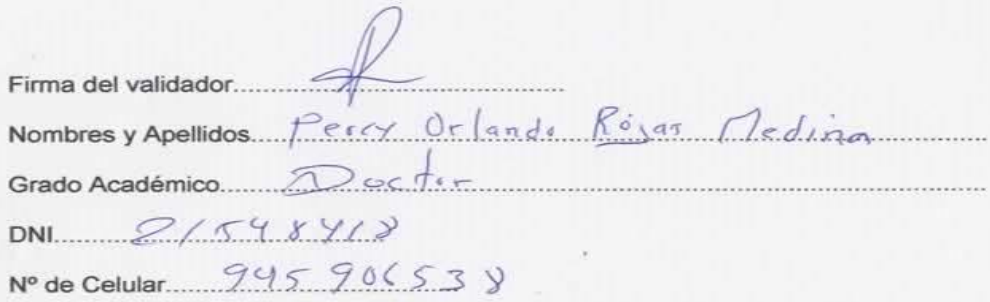 Firma del validador
Nombres y Apellidos Percy Orlando Rojas Medina
Grado Académico Doctor
DNI 21548418
Nº de Celular 945 906538